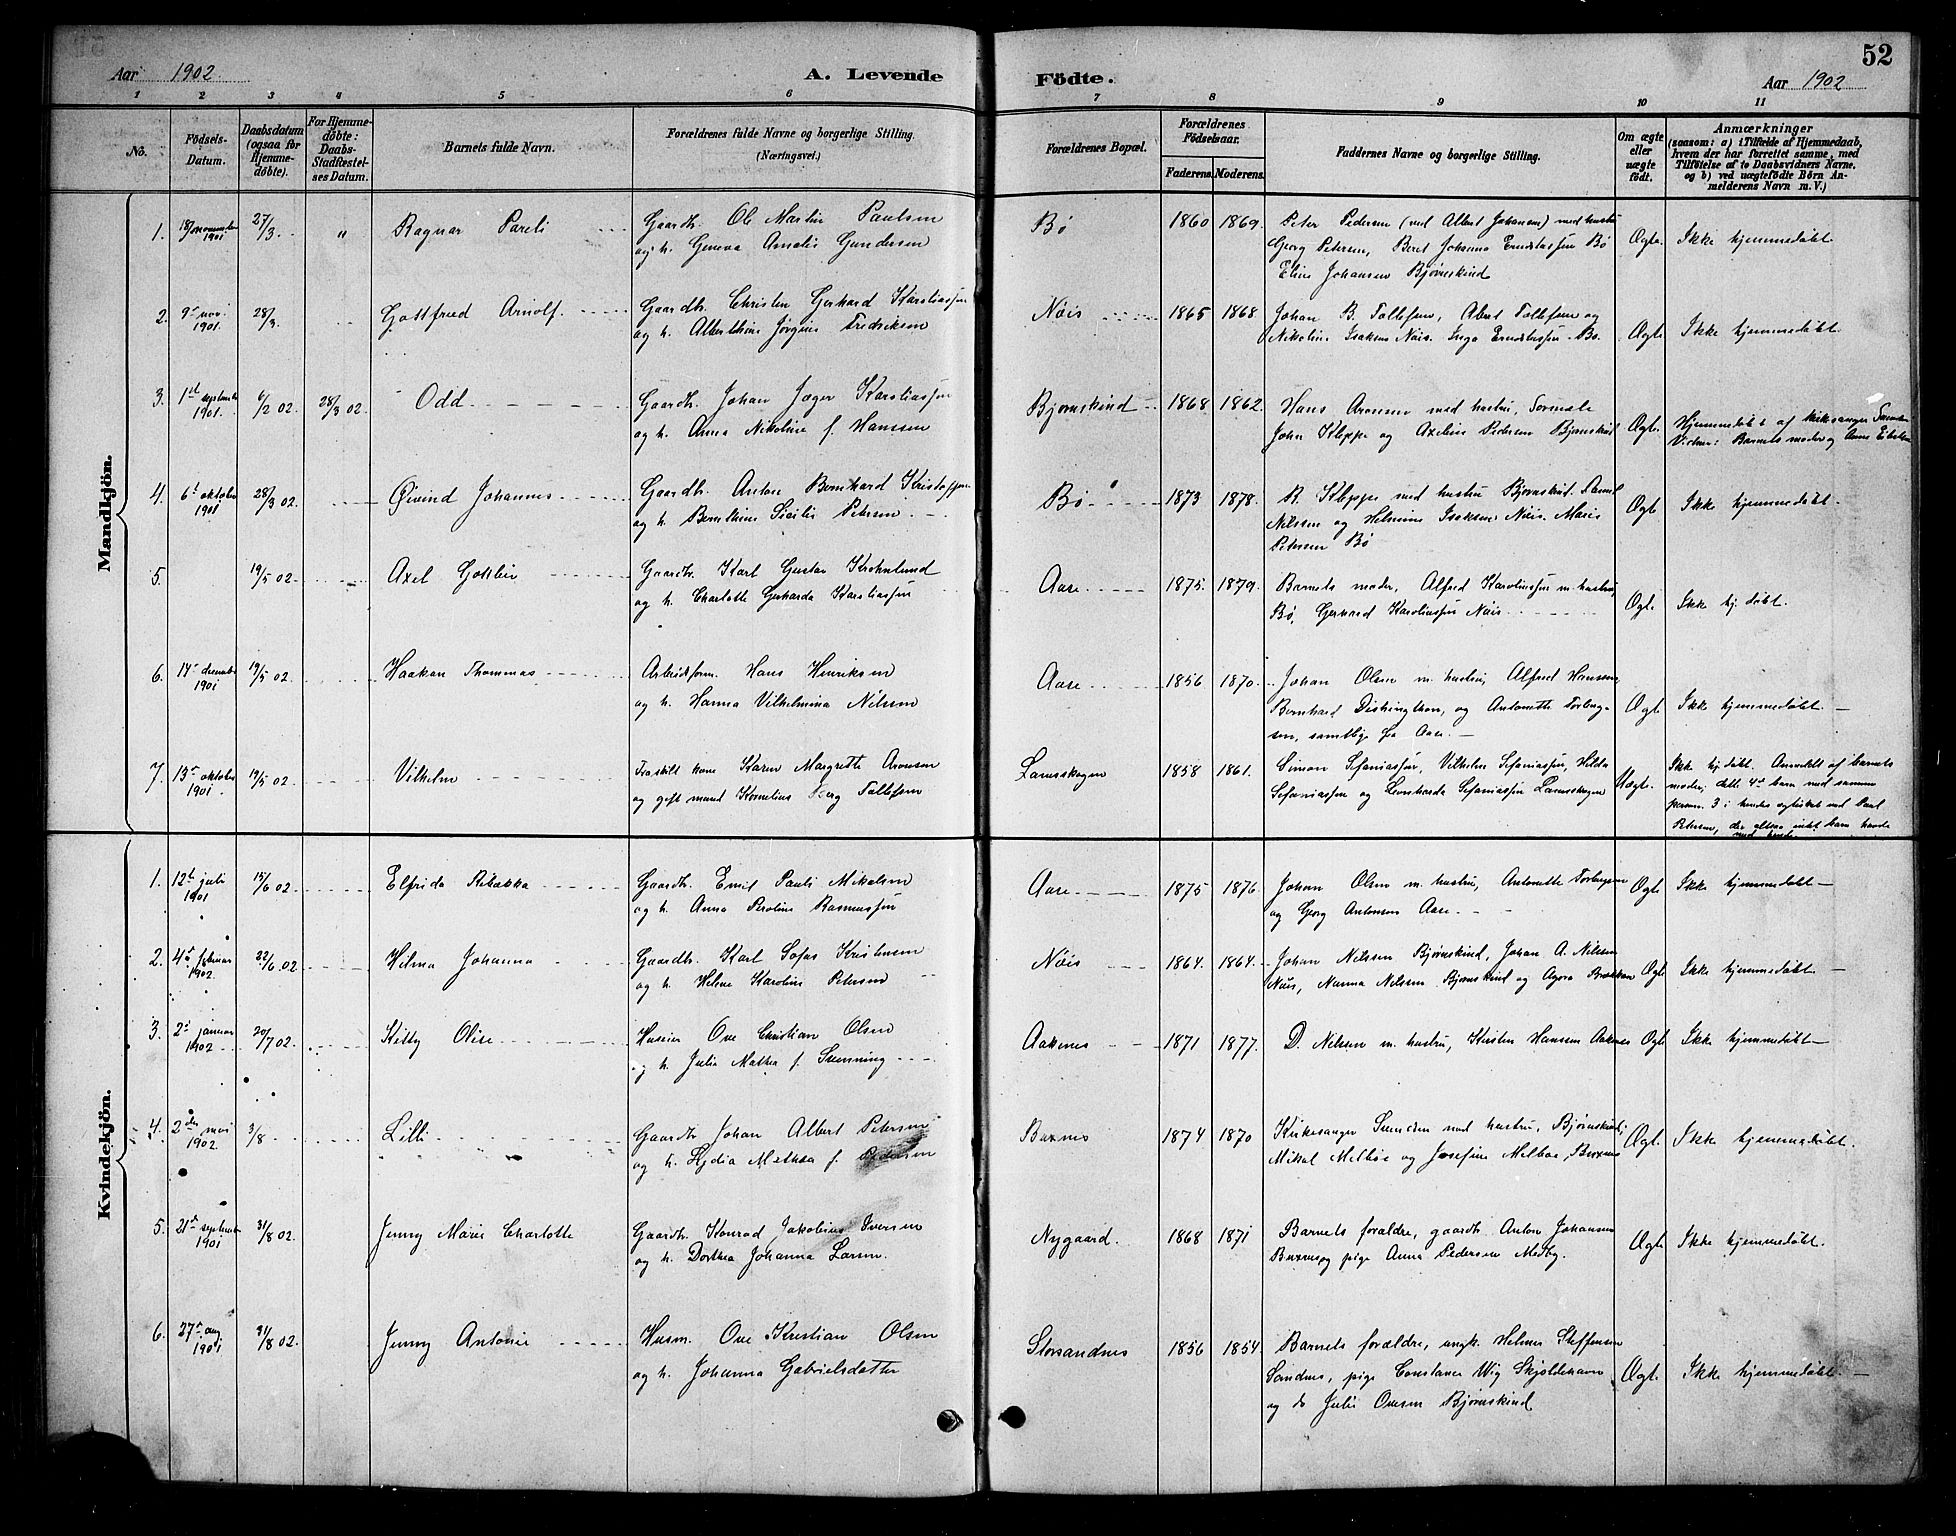 52
Aar 1902
A. Levende
Födte.
Aar 1902
1 2 3 4 5 6 7 8 9 10 11
No.
Födsels-Datum.
Daabsdatum (ogsaa for Hjemme-döbte).
For Hjemme-döbte: Daabs-Stadfæstel-ses Datum.
Barnets fulde Navn.
Forældrenes fulde Navne og borgerlige Stilling.
(Næringsvei.)
Forældrenes Bopæl.
Forældrenes Födselsaar.
Faderens. Moderens.
Faddernes Navne og borgerlige Stilling.
Om ægte eller uægte födt.
Anmærkninger
(saasom: a) i Tilfælde af Hjemmedaab,
hvem der har forrettet samme, med
Tilföielse af to Daabsvidners Navne,
og b) ved uægtefödte Börn An-
melderens Navn m. V.)
Mandkjön.
1. 18/november 1901 27/3. " Ragnar Pareli
Gaardbr. Ole Martin Paulsen
og h. Geneva Amalie Gundersen
Bø 1860 1869.
Peter Pedersen (ved Albert Johansen) med hustru
Georg Petersen, Beret Johanna Ernstassen Bø
Eline Johansen Bjørnskind
Ægte. Ikke hjemmedøbt.
2. 9de nov. 1901. 28/3. Gottfried Arnolf.
Gaardbr. Christen Gerhard Karoliussen
og h. Alberthine Jørgine Fredriksen
Nois 1865 1868
Johan B. Tollefsen, Abert Tollefsen og
Nikoline Isaksen Nois. Inga Ernstassen Bø.
Ægte Ikke hjemmedøbt.
3. 1st september 1901. 6/2 02. 28/3 02. Odd
Gaardbr. Johan Jæger Karoliussen
og h. Anna Nikoline f. Hanssen
Bjørnskind 1868 1862.
Hans Aronsen med hustru, Tormole
John Kleppe og Axeline Pedersen Bjørnskind
Ægte. Hjemmedøbt af kirkesanger
Vidner: Barnets moder og Anne
4. 6t oktober 1901 28/3 02. Øivind Johannes
Gaardbr. Anton Bernhard Kristoffersen
og h. Bernthine Sicilie Petersen
Bø 1873 1878.
R. Kleppe med hustru Bjørnskind.
Nilssen og Helmine Isaksen Nois. Marie
Petersen Bø
Ægte Ikke hjemmedøbt.
5. 19/5 02. Axel Gotlieb
Gaardbr. Karl Gustav Krohnlund
og h. Charlotte Gerharda Karoliussen
Aase 1875. 1879.
Barnets moder, Alfred Karoliussen m. hustru,
Bø, Gerhard Karoliussen Nois
Ægte Ikke hj. døbt.
6. 14de december 1901 19/5 02. Haakan Thommas
Arbeidsform. Hans Henriksen
og h. Hanna Vilhelmina Nilsen
Aase 1856 1870.
Johan Olsen m. hustru, Alfred Hansen,
Bernhard Dishington, og Antonette Torberg-
sen, samtlige fra Aase.
Ægte Ikke hjemmedøbt.
7. 13de oktober 1901 19/5 02. Vilhelm
Fraskilt kone Karen Margrethe Aronsen
og gift mand Kornelius Berg Tollefsen
Lanesskogen 1858 1861.
Simon Sefaniassen, Vilhelm Sefaniassen, Hilda
Sefaniassen og Leonharda Sefaniassen Lanesskogen
Uægte. Ikke hj. døbt. Anmeldt af barnets
moder; dette 4de barn med samme
person. 3 i hendes egteskab med Paul
Petersen, der altsaa intet barn havde
med hende
Kvindekjön.
1. 12te juli 1901 15/6 02. Elfrida Rebekka
Gaardbr. Emil Pauli Mikalsen
og h. Anna Peroline Rasmussen
Aase 1875 1876.
Johan Olsen m. hustru, Antonette Torbergsen
og Georg Antonsen Aase.
Ægte Ikke hjemmedøbt
2. 4de februar 1902. 22/6 02 Hilma Johanna
Gaardbr. Karl Sofus Kristensen
og h. Helene Karoline Petersen
Nois 1864. 1864.
Johan Nilssen Bjørnskind, Johan A. Nilssen
Nois, Nanna Nilssen Bjørnskind og Agora Brækkan
Ægte Ikke hjemmedøbt
3. 2de januar 1902 20/7 02. Kitty Olise
Huseier Ove Christian Olsen
og h. Julia Mathea f. Svenning
Aakenes 1871 1877.
D. Nilssen m. hustru, Kirsten Hanssen Aakenes
Ægte Ikke hjemmedøbt
4. 2den mai 1902 3/8 Lilli
Gaardbr. Johan Albert Petersen
og h. Lydia Mathea f. Pedersen
Buxnes 1874 1870
Kirkesanger med hustru, Bjørnskind;
Mikal Melbøe og Josefine Melboe, Buxnes
Ægte Ikke hjemmedøbt.
5. 21de september 1901 31/8 02. Jenny Marie Charlotte
Gaardbr. Konrad Jakobius Iversen
og h. Dorthea Johanna Larsen.
Nygaard. 1868 1871
Barnets forældre, gaardbr. Anton Johansen
Buxnes og pige Anna Pedersen Medby.
Ægte Ikke hjemmedøbt.
6. 27de aug. 1901 31/8 02. Jenny Antonie
Husm. Ove Kristian Olsen
og h. Johanna Gabrielsdatter
Storsandnes 1856 1854.
Barnets forældre, ungk. Helmer Steffensen
Sandnes, pige Constance Wig Skjoldehavn
og do Julie Ovesen Bjørnskind
Ægte. Ikke hjemmedøbt.